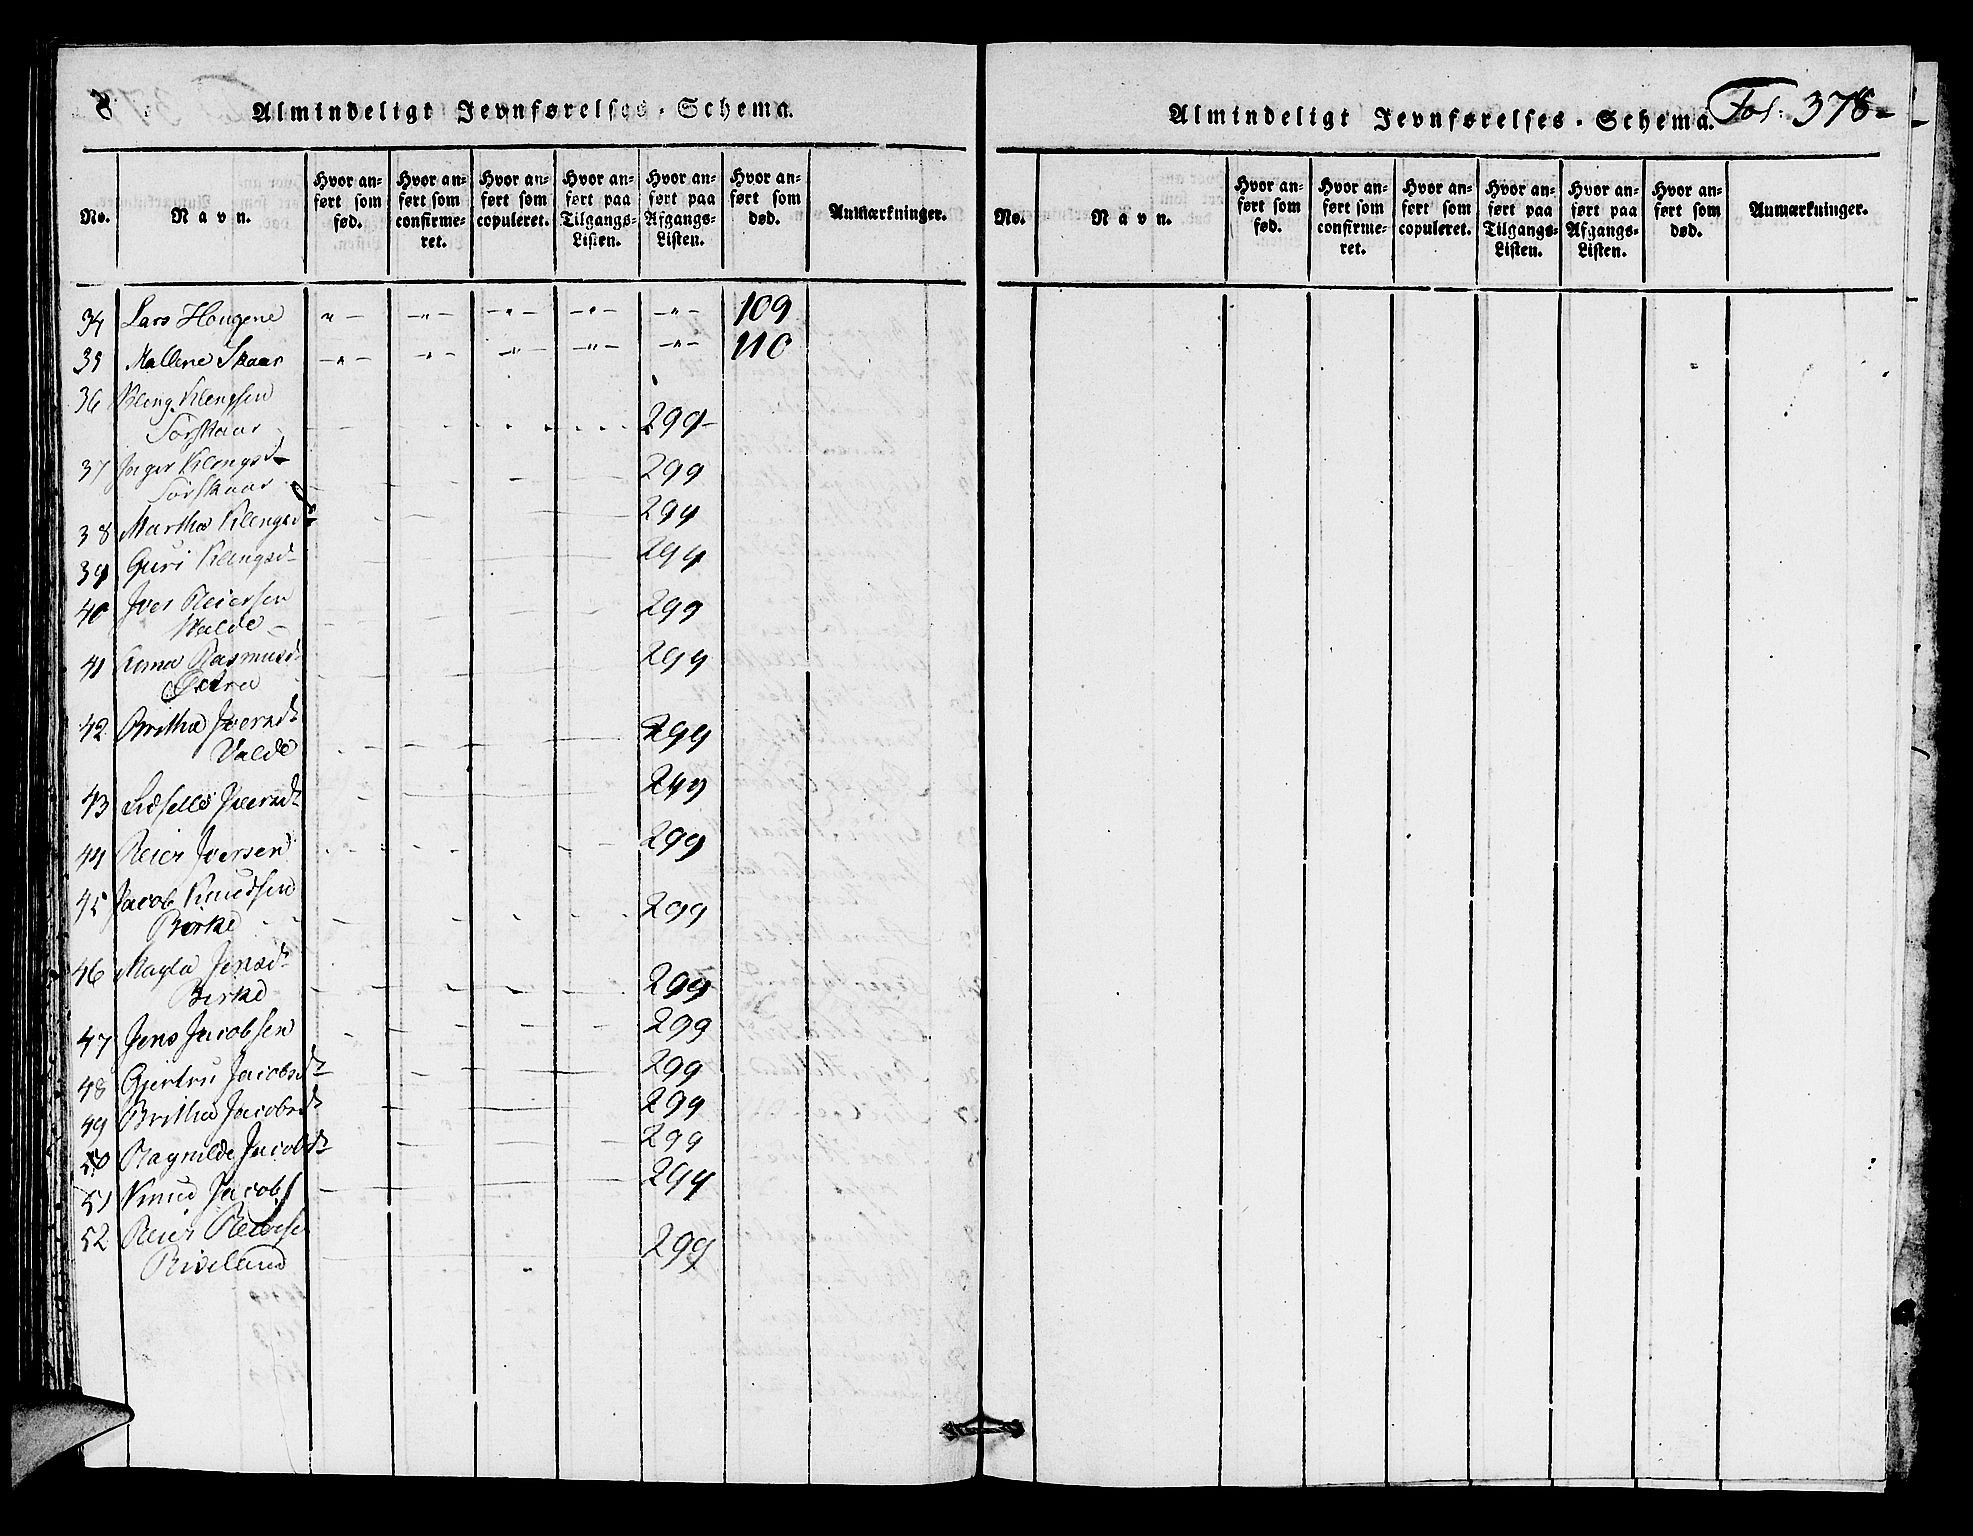 8
Almindeligt Jevnførelses-Schema.
No.
Navn.
Hvor anført som fød.
Hvor anført som confirmeret.
Hvor anført som copuleret.
Hvor anført paa Tilgangs-Listen.
Hvor anført paa Afgangs-Listen.
Hvor anført som død.
Anmærkninger.
34 Lars Hougene 109
35 Mallene Skaar 110
36 Kleng Klengsen
Sørskaar 299
37 Inger Klengsd
Sørskaar 299
38 Martha Klengsd 299
39 Guri Klengsd 299
40 Iver Reiersen
Walde 299
41 Anna Rasmusd
299
42 Britha Iversd
Valde 299
43 Iversd 299
44 Reier Iversen 299
45 Jacob Knudsen
Birke 299
46 Magla Jensd
Birke 299
47 Jens Jacobsen 299
48 Gjertru Jacobsd 299
49 Britha Jacobsd 299
50 Ragnilde Jacobsd 299
51 Knud Jacobs 299
52 Reier Reierse
Riveland 299
Almindeligt Jevnførelses-Schema.
Fol: 378
No.
Navn.
Hvor anført som fød.
Hvor anført som confirmeret.
Hvor anført som copuleret.
Hvor anført paa Tilgangs-Listen.
Hvor anført paa Afgangs-Listen.
Hvor anført som død.
Anmærkninger.